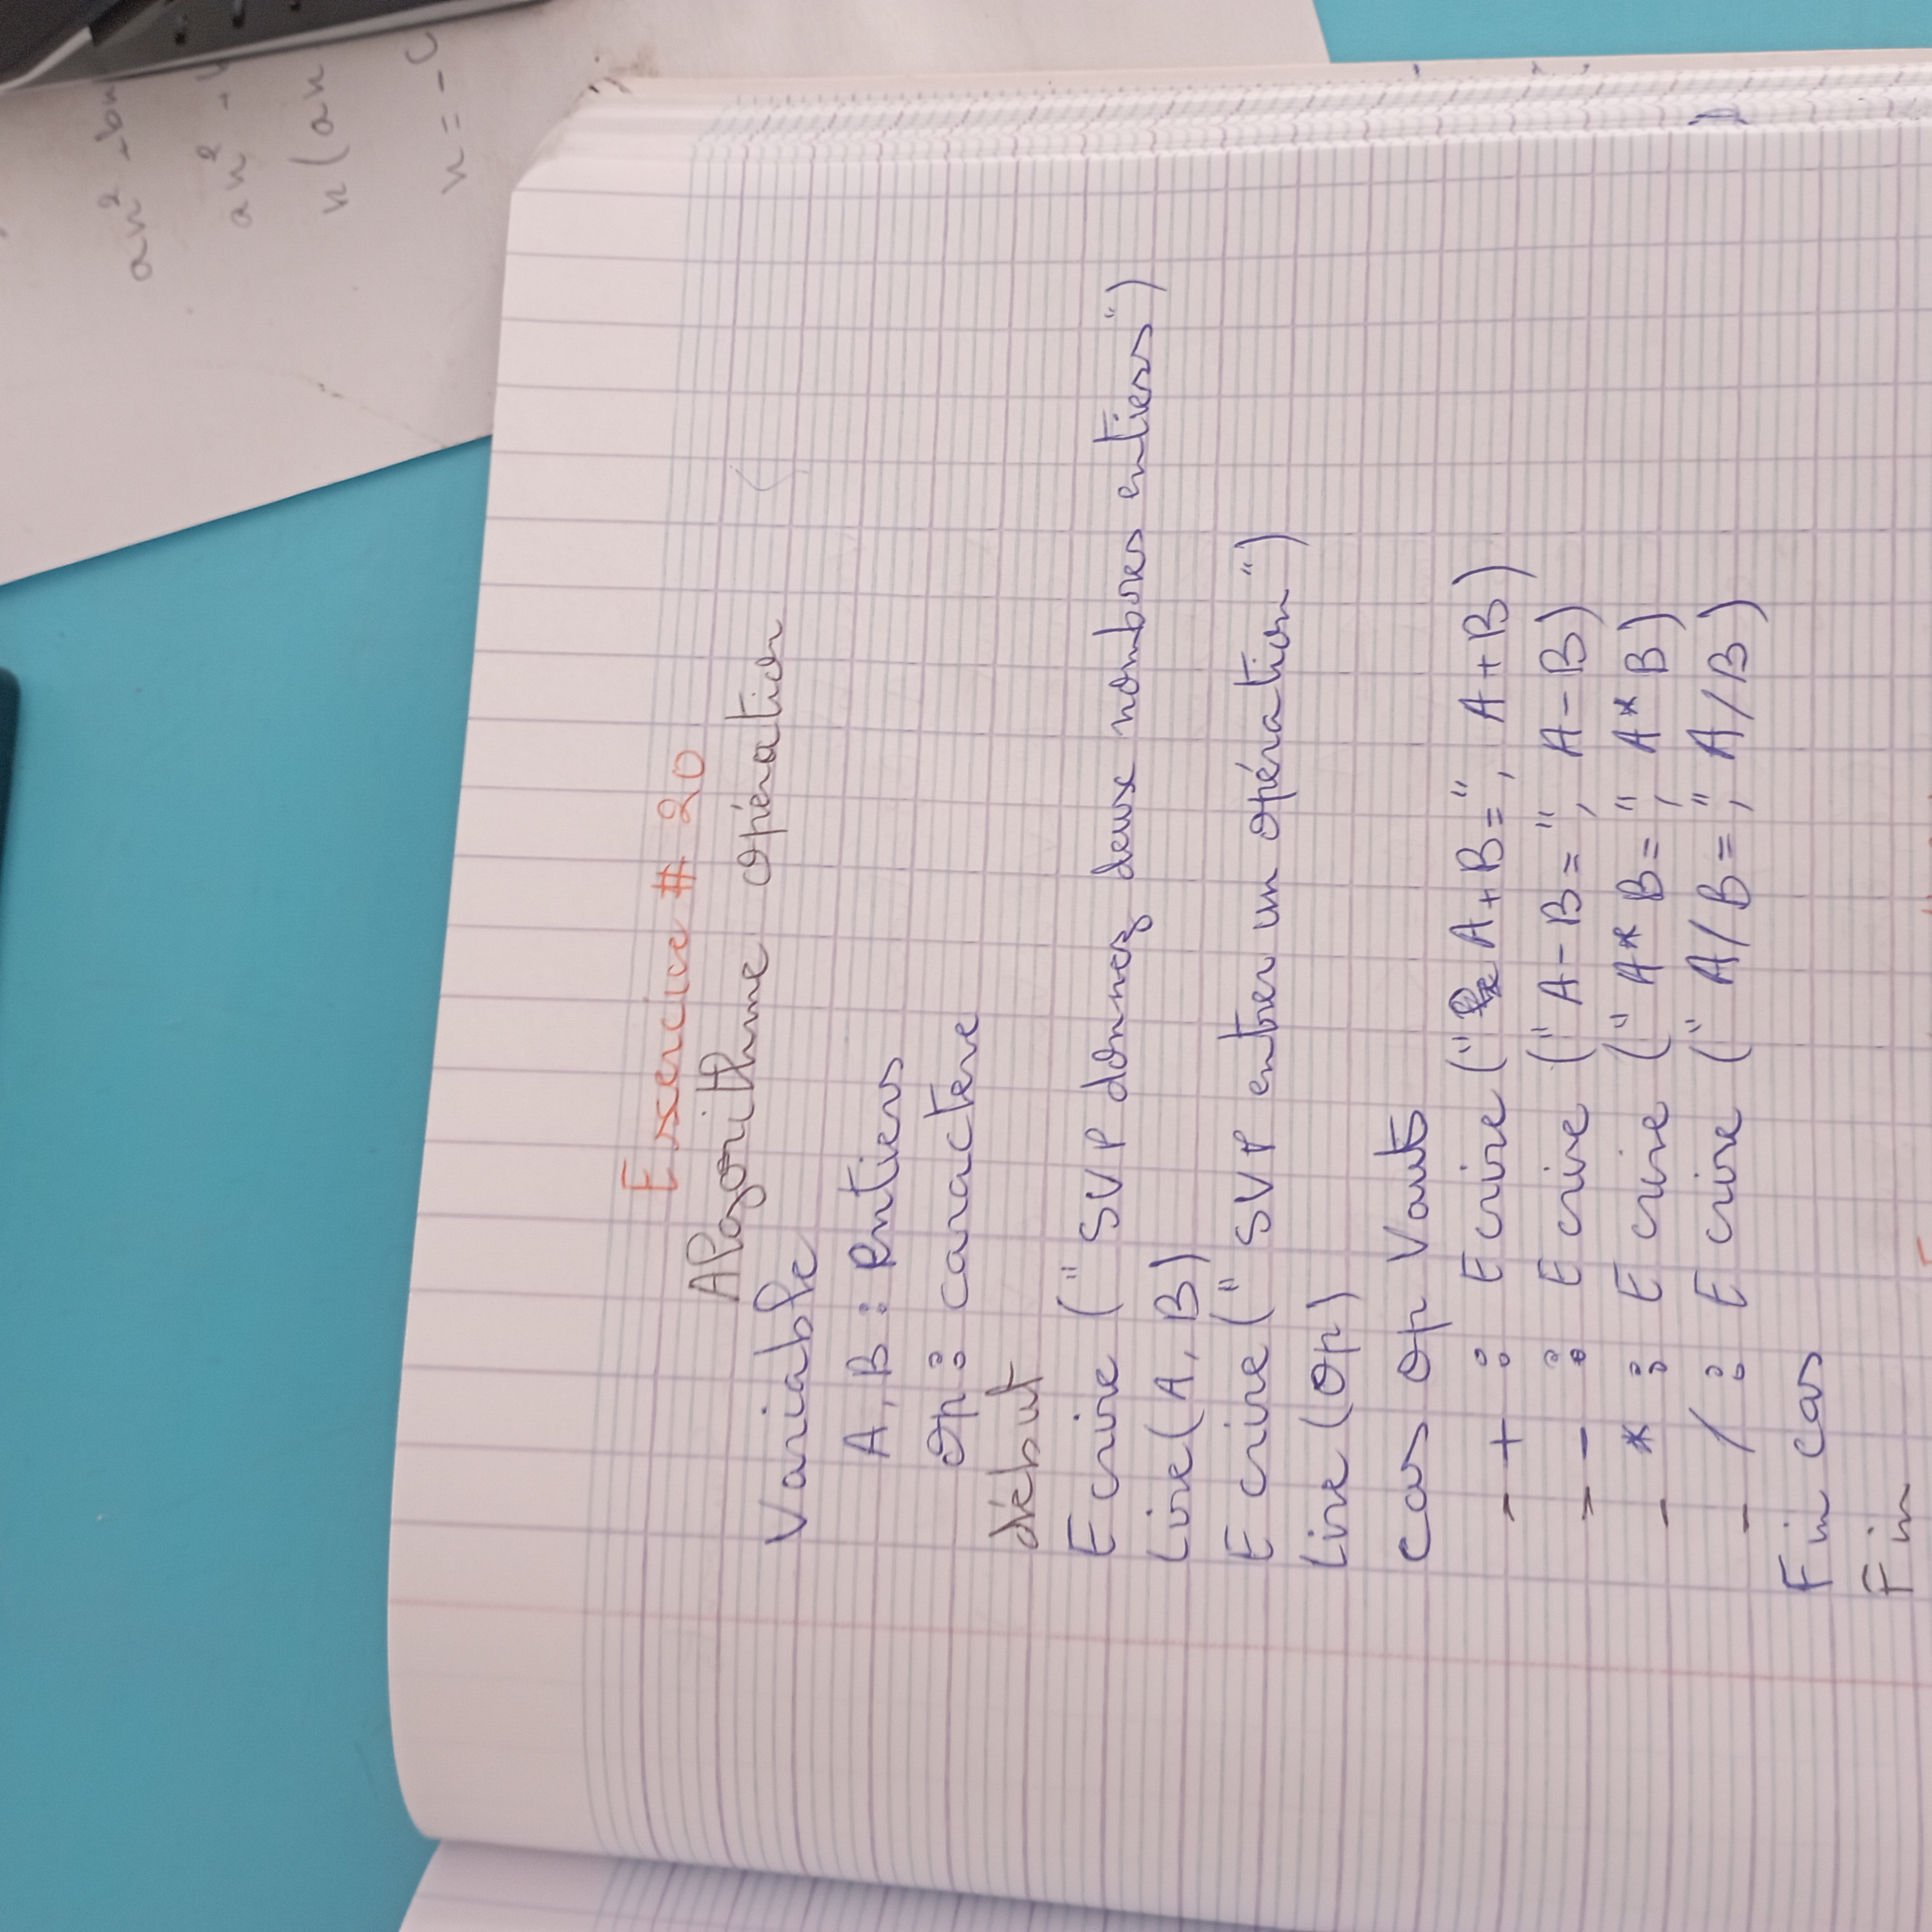 an² + bn
an² +
n (an
n = - C
Exercice # 20
Algorithme opération
Variable
A, B : entiers
op : caractere
début
Ecrire (" SVP donnez deux nombres entiers")
Lire(A, B)
Ecrire (" SVP entrer un opération ")
Lire (op)
cas op Vaut
- + : Ecrire (" A+B=", A+B)
- - : Ecrire (" A-B= ", A-B)
- * : Ecrire (" A* B= ", A* B)
- / : Ecrire (" A/B= ", A/B)
Fin cas
Fin